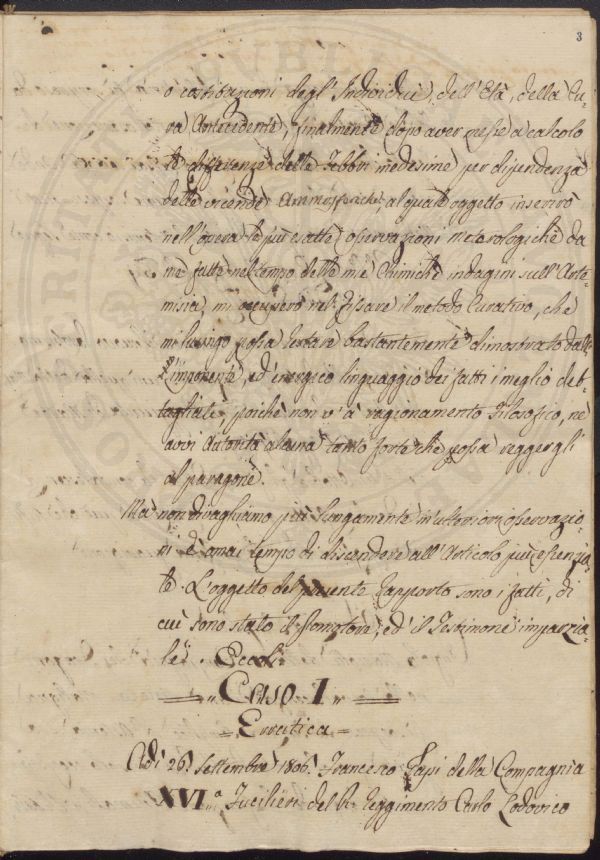 3
o costituzioni degl' Individui, dell' Età, della Cu-
ra Antecedente, finalmente dopo aver messe a calcolo
le differenze delle Febbri medesime per dipendenza
delle vicende Atmosferiche, al quale oggetto inserirò
nell' opera le più esatte osservazioni meterologiche da
me fatte nel tempo delle mie Chimiche indagini sull' Arte-
misia, mi occuperò nel fissare il metodo Curativo, che
mi lusingo possa restare bastantemente dimostrato dall'
imponente, ed' energico linguaggio dei fatti i meglio det-
tagliati, poichè non v' à ragionamento Filosofico, ne
avvi autorità alcuna tanto forte che possa reggergli
al paragone.
Ma non divaghiamo più lungamente in ulteriori osservazio-
ni è omai tempo di discendere all' Articolo più essenzia-
le. L'oggetto del presente Rapporto sono i fatti, di
cui sono stato il Promotore, ed' il Testimone imparzia-
le. Eccoli
Caso I.
Erratica
Adì 26. Settembre 1806. Francesco Lapi della Compagnia
XVI.a Fucilieri del R. Reggimento Carlo Lodovico